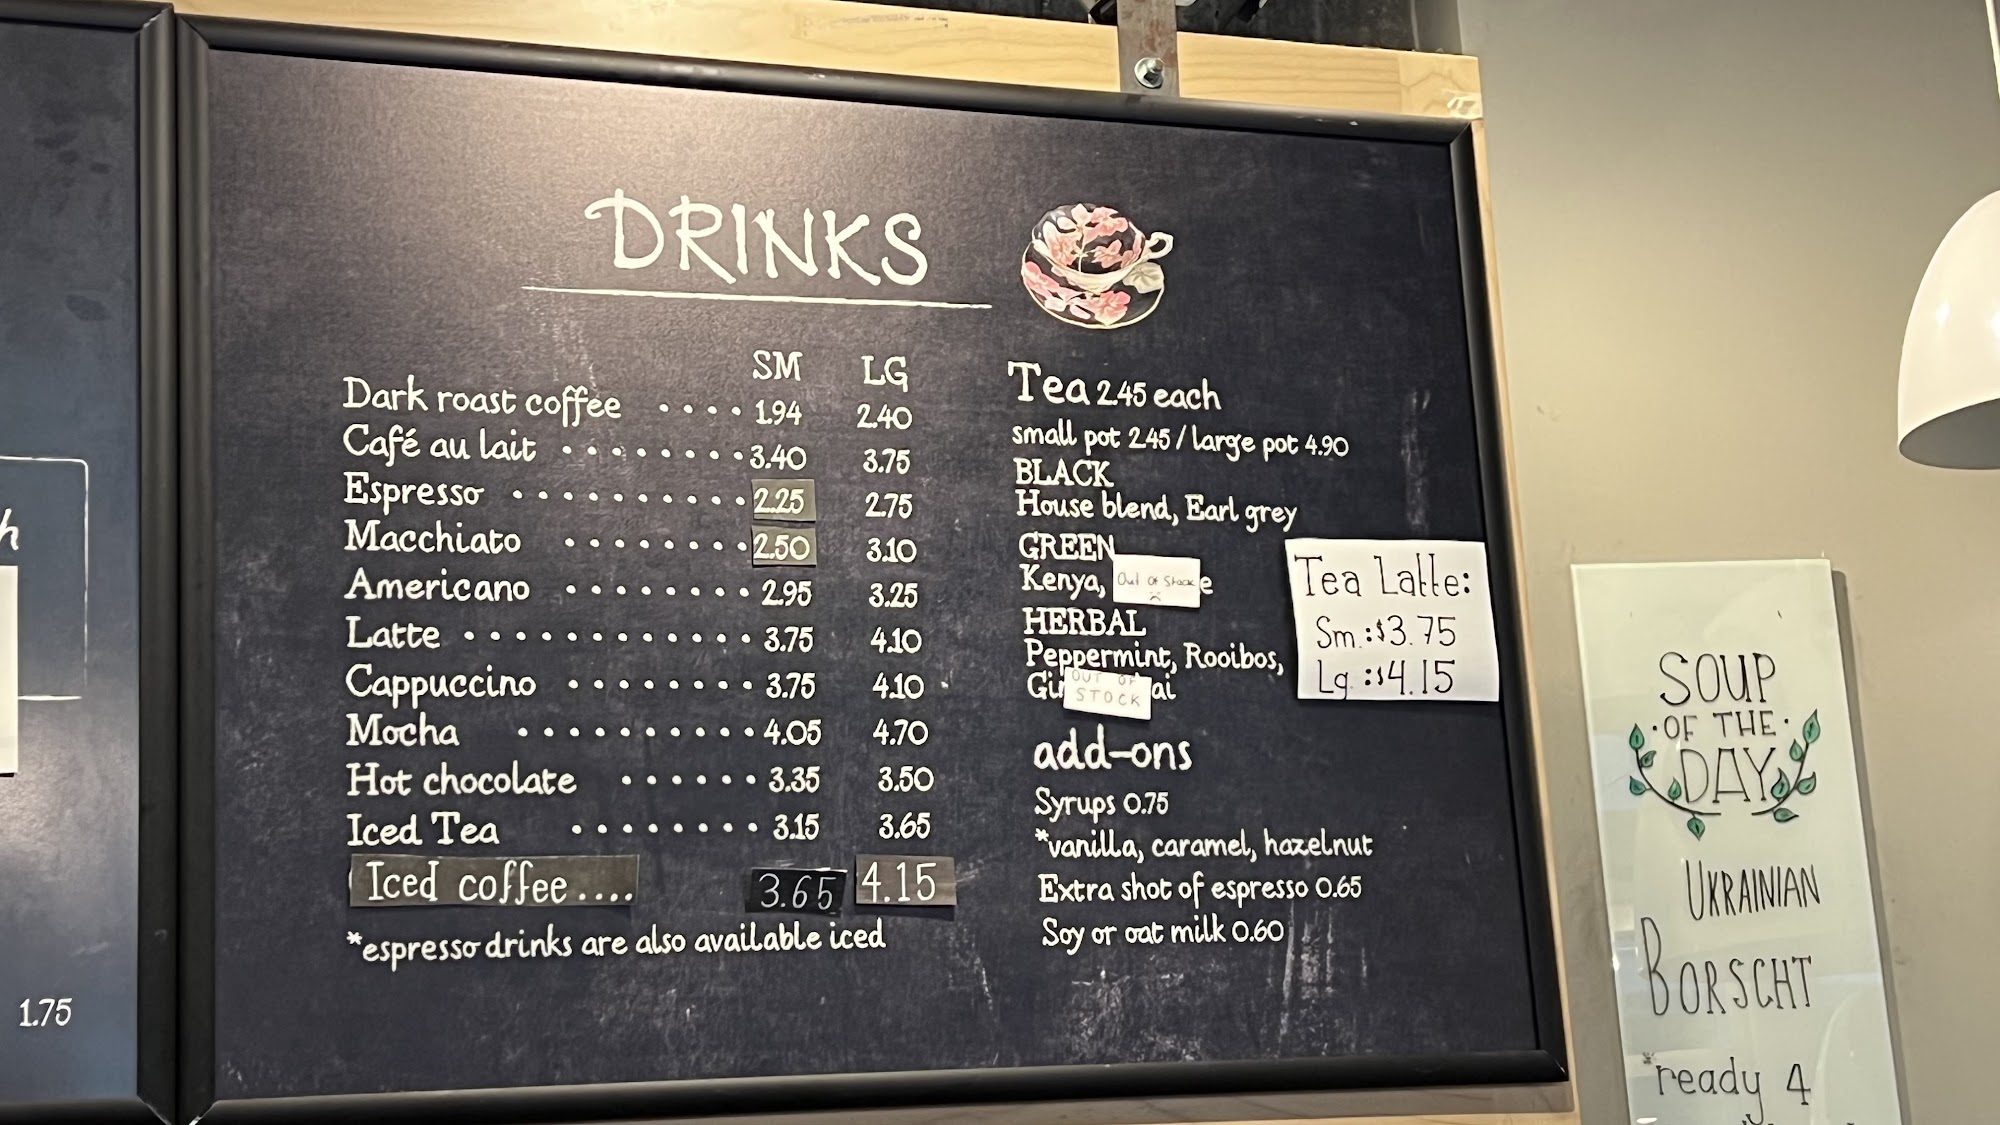 h
1.75
DRINKS
SM LG
Dark roast coffee .... 1.94 2.40
Café au lait ........ 3.40 3.75
Espresso .......... 2.25 2.75
Macchiato ........ 2.50 3.10
Americano ........ 2.95 3.25
Latte ............ 3.75 4.10
Cappuccino ........ 3.75 4.10
Mocha .......... 4.05 4.70
Hot chocolate ...... 3.35 3.50
Iced Tea ........ 3.15 3.65
Iced coffee.... 3.65 4.15
*espresso drinks are also available iced
Tea 2.45 each
small pot 2.45 / large pot 4.90
BLACK
House blend, Earl grey
GREEN
Kenya, Out of Stock e
HERBAL
Peppermint, Rooibos,
Gi OUT OF STOCK ai
add-ons
Syrups 0.75
*vanilla, caramel, hazelnut
Extra shot of espresso 0.65
Soy or oat milk 0.60
Tea Latte:
Sm.:$3.75
Lg.:$4.15
SOUP
·OF THE·
DAY
UKRAINIAN
BORSCHT
*ready 4